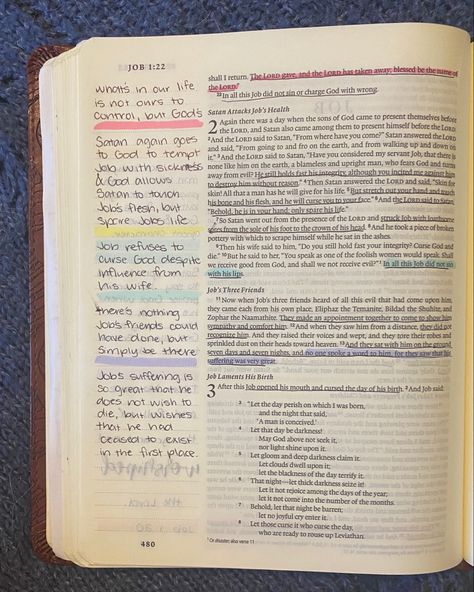 JOB 1:22
what's in our life
is not ours to
control, but God's
Satan again goes
to God to tempt
Job with sickness
& God allows
Satan to touch
Job's flesh, but
spare Job's life
Job refuses to
curse God despite
influence from
his wife.
there's nothing
Job's friends could
have done, but
simply be there
Job's suffering is
so great that he
does not wish to
die, but wishes
that he had
ceased to exist
in the first place.
480
shall I return. The LORD gave, and the LORD has taken away; blessed be the name of
the LORD."
22 In all this Job did not sin or charge God with wrong.
Satan Attacks Job's Health
2 Again there was a day when the sons of God came to present themselves before
the LORD, and Satan also came among them to present himself before the LORD.
2 And the LORD said to Satan, "From where have you come?" Satan answered the LORD and
said, "From going to and fro on the earth, and from walking up and down on
it." 3 And the LORD said to Satan, "Have you considered my servant Job, that there is
none like him on the earth, a blameless and upright man, who fears God and turns
away from evil? He still holds fast his integrity, although you incited me against him
to destroy him without reason." 4 Then Satan answered the LORD and said, "Skin for
skin! All that a man has he will give for his life. 5 But stretch out your hand and touch
his bone and his flesh, and he will curse you to your face." 6 And the LORD said to Satan,
"Behold, he is in your hand; only spare his life."
7 So Satan went out from the presence of the LORD and struck Job with loathsome
sores from the sole of his foot to the crown of his head. 8 And he took a piece of broken
pottery with which to scrape himself while he sat in the ashes.
9 Then his wife said to him, "Do you still hold fast your integrity? Curse God and
die." 10 But he said to her, "You speak as one of the foolish women would speak. Shall
we receive good from God, and shall we not receive evil?" 1 In all this Job did not sin
with his lips.
Job's Three Friends
11 Now when Job's three friends heard of all this evil that had come upon him,
they came each from his own place, Eliphaz the Temanite, Bildad the Shuhite, and
Zophar the Naamathite. They made an appointment together to come to show him
sympathy and comfort him. 12 And when they saw him from a distance, they did not
recognize him. And they raised their voices and wept, and they tore their robes and
sprinkled dust on their heads toward heaven. 13 And they sat with him on the ground
seven days and seven nights, and no one spoke a word to him, for they saw that his
suffering was very great.
Job Laments His Birth
3 After this Job opened his mouth and cursed the day of his birth. 2 And Job said:
3 "Let the day perish on which I was born,
and the night that said,
'A man is conceived.'
4 Let that day be darkness!
May God above not seek it,
nor light shine upon it.
5 Let gloom and deep darkness claim it.
Let clouds dwell upon it;
let the blackness of the day terrify it.
6 That night—let thick darkness seize it!
Let it not rejoice among the days of the year;
let it not come into the number of the months.
7 Behold, let that night be barren;
let no joyful cry enter it.
8 Let those curse it who curse the day,
who are ready to rouse up Leviathan.
1 Or disaster; also verse 11